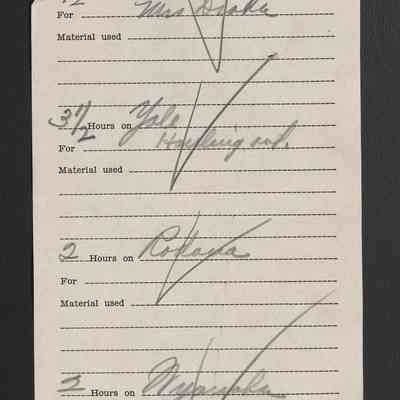 For Mrs Drake
Material used
3 1/2 Hours on Yale
For Hauling out.
Material used
2 Hours on Rodora
For
Material used
2 Hours on